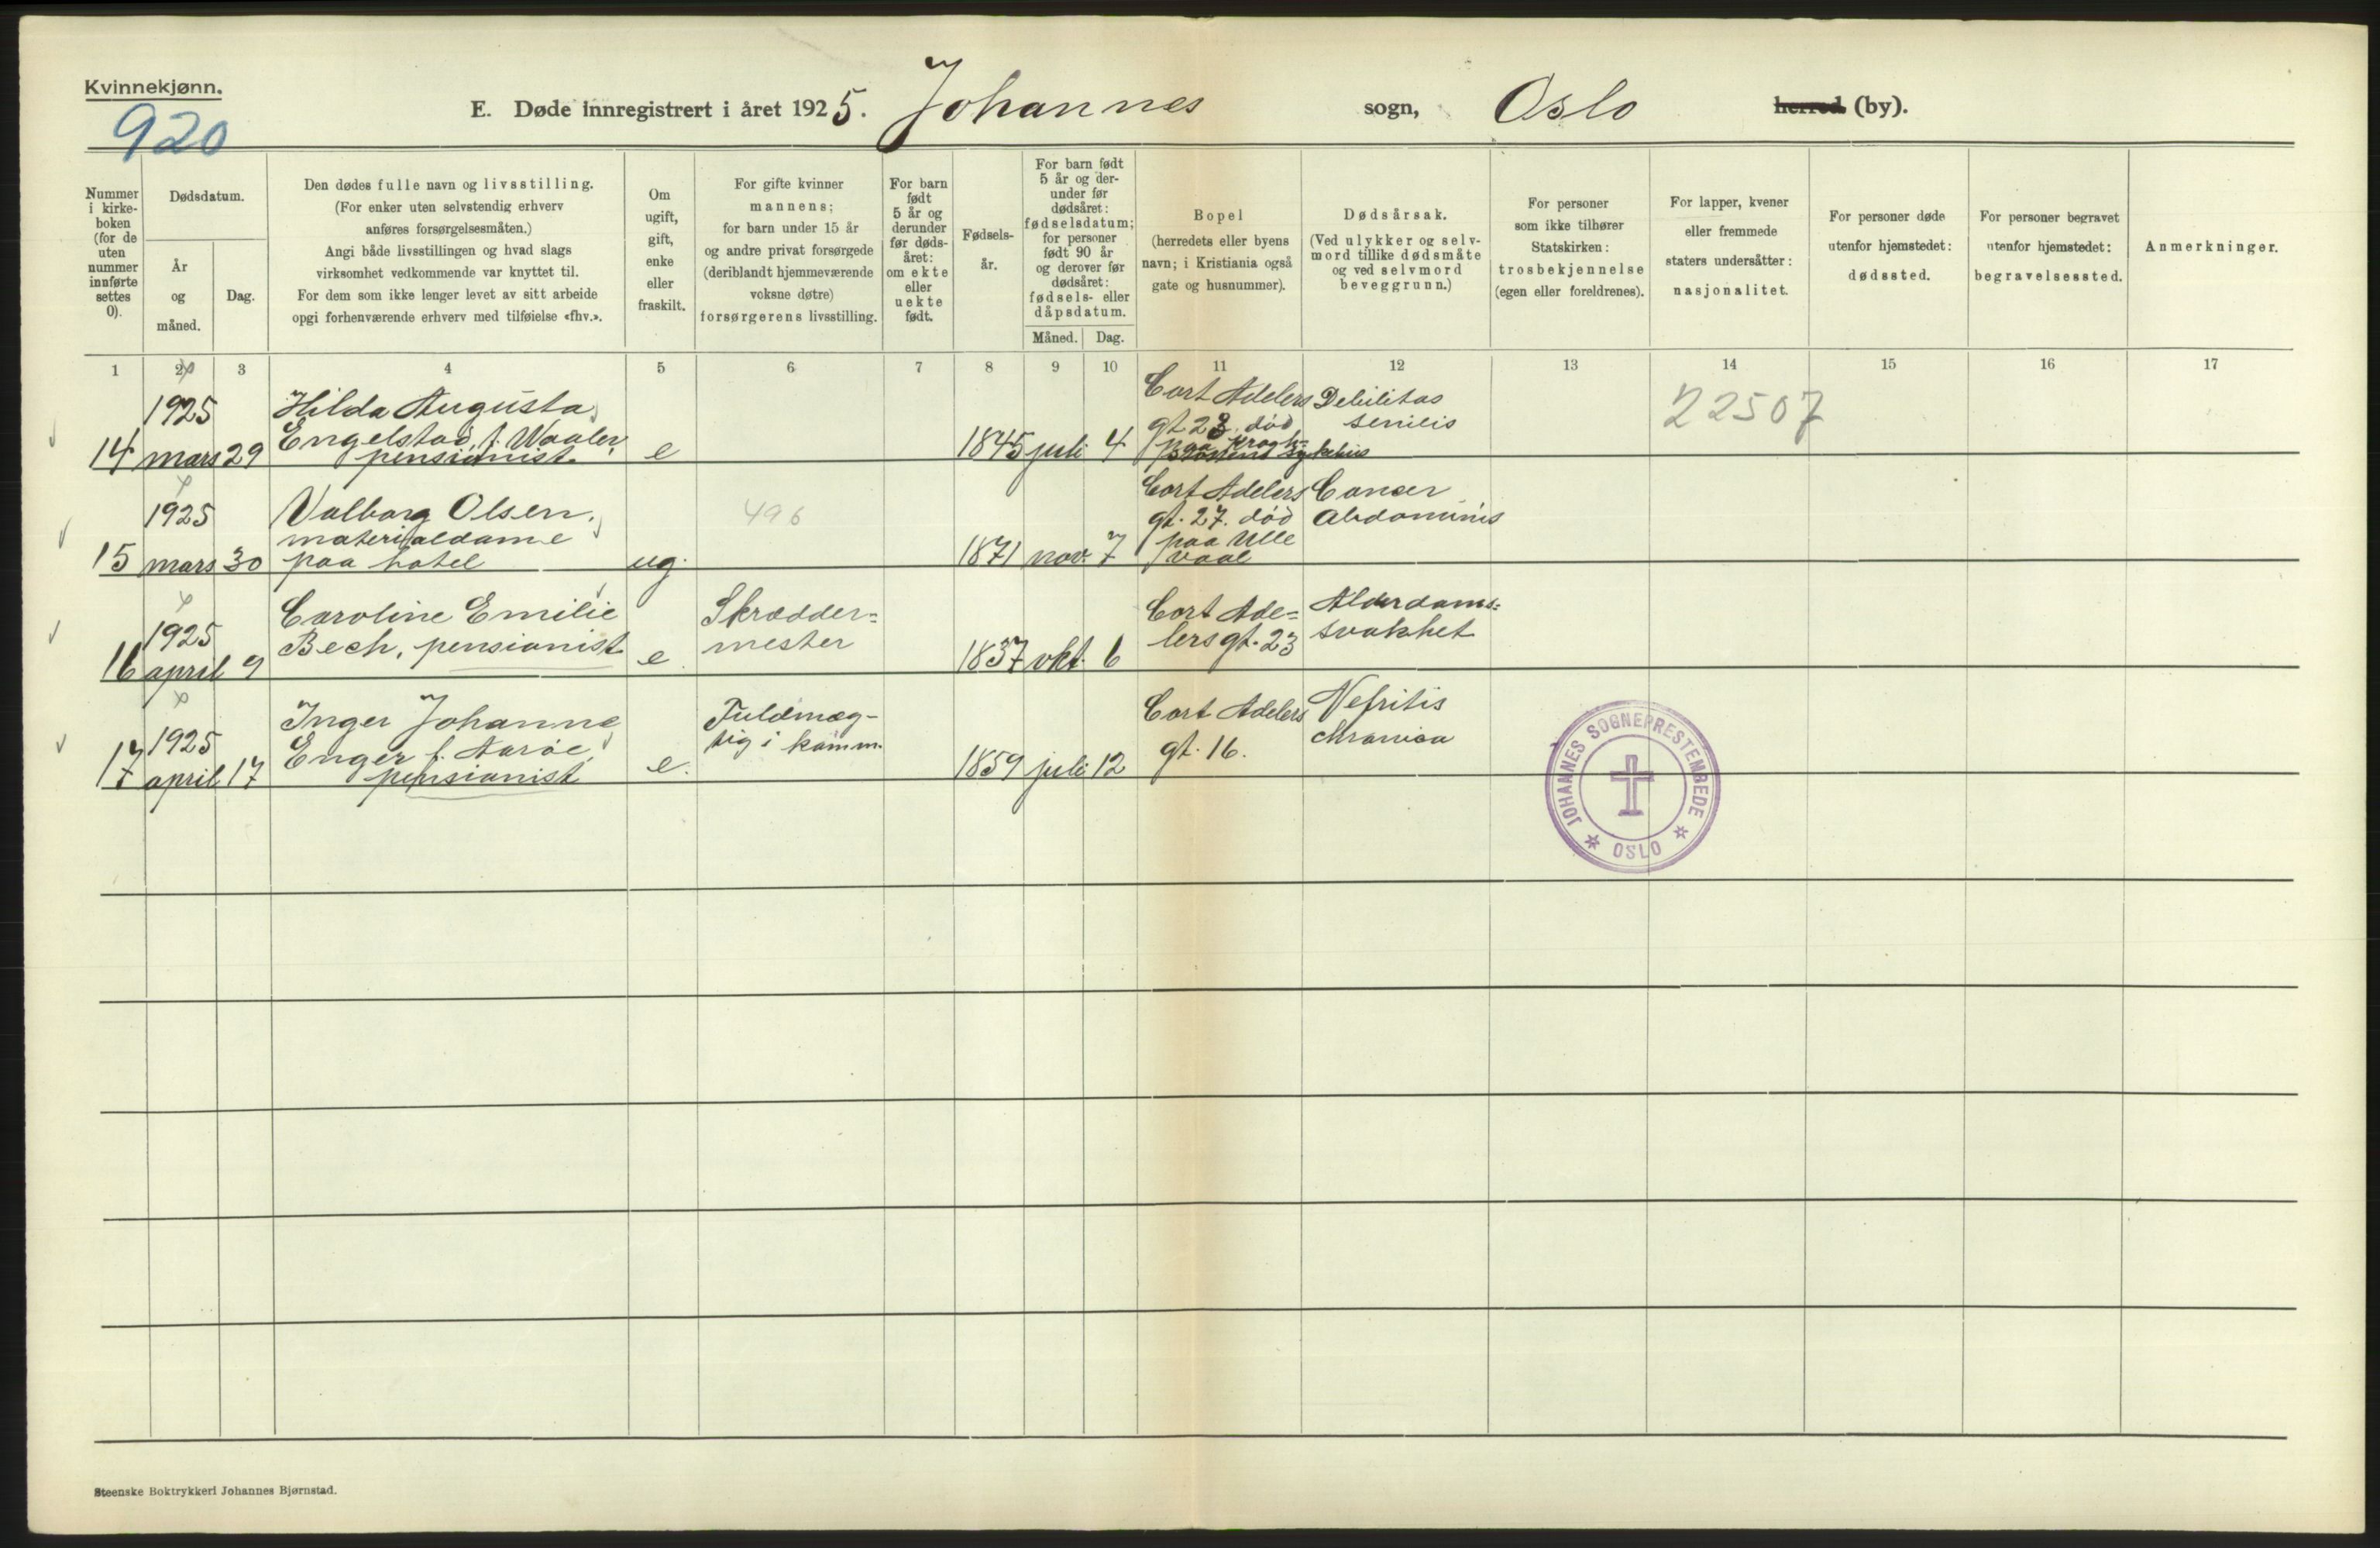 Kvinnekjønn.
920
E. Døde innregistrert i året 1925. Johannes sogn, Oslo herred (by).
Nummer i kirke-boken (for de uten nummer innførte settes 0).
Dødsdatum.
År og måned.
Dag.
Den dødes fulle navn og livsstilling.
(For enker uten selvstendig erhverv
anføres forsørgelsesmåten.)
Angi både livsstillingen og hvad slags
virksomhet vedkommende var knyttet til.
For dem som ikke lenger levet av sitt arbeide
opgi forhenværende erhverv med tilføielse «fhv.».
Om ugift, gift, enke eller fraskilt.
For gifte kvinner
mannens;
for barn under 15 år
og andre privat forsørgede
(deriblandt hjemmeværende
voksne døtre)
forsørgerens livsstilling.
For barn født 5 år og derunder før døds-året: om ekte eller uekte født.
Fødsels-år.
For barn født
5 år og der-
under før
dødsåret:
fødselsdatum;
for personer
født 90 år
og derover før
dødsåret:
fødsels- eller
dåpsdatum.
Måned. Dag.
Bopel
(herredets eller byens
navn; i Kristiania også
gate og husnummer).
Dødsårsak.
(Ved ulykker og selv-
mord tillike dødsmåte
og ved selvmord
beveggrunn.)
For personer
som ikke tilhører
Statskirken:
trosbekjennelse
(egen eller foreldrenes).
For lapper, kvener
eller fremmede
staters undersåtter:
nasjonalitet.
For personer døde
utenfor hjemstedet:
dødssted.
For personer begravet
utenfor hjemstedet:
begravelsessted.
Anmerkninger.
1 2 3 4 5 6 7 8 9 10 11 12 13 14 15 16 17
14
1925
mars 29
Hilda Augusta
Engelstad, f. Waaler,
pensionist.
e
1845 juli 4
Cort Adelers
gt. 23. død
paa Krogh-
sykehus
Debilitas
senilis
22507
15
1925
mars 30
Valborg Olsen,
materialdame
paa hotel
ug.
496
1871 nov. 7
Cort Adelers
gt. 27. død
paa Ulle
vaal
Cancer
abdominis
16
1925
april 9
Caroline Emilie
Bech, pensionist
e.
Skrædder=
mester
1837 okt. 6
Cort Ade=
lers gt. 23
Alderdoms=
svakhet
17
1925
april 17
Inger Johanne
Enger f. Aarøe,
pensionist
e.
Fuldmæg-
tig i komm.
1859 juli 12
Cort Adelers
gt. 16.
Nefritis
chronica
JOHANNES SOGNEPRESTEMBEDE
OSLO
Steenske Boktrykkeri Johannes Bjørnstad.